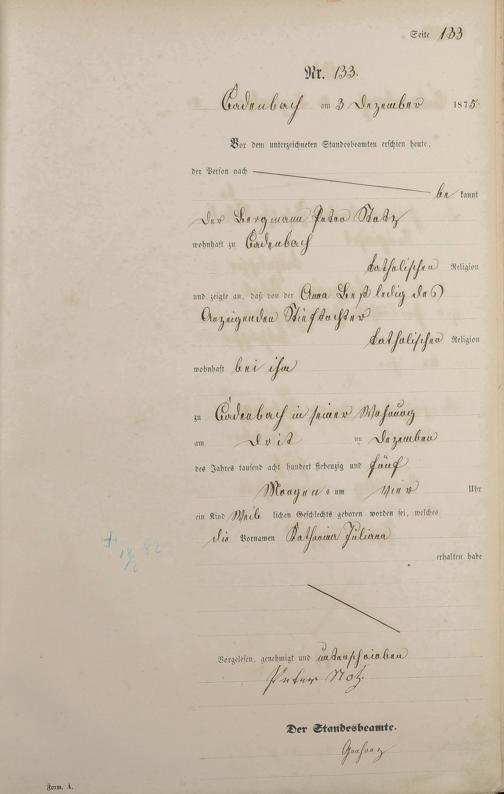 Seite 133
Nr. 133.
Cadenbach am 3 Dezember 1875.
Vor dem unterzeichneten Standesbeamten erschien heute,
der Person nach
be kannt
der Bergmann Peter Notz
wohnhaft zu Cadenbach
katholischen Religion
und zeigte an, daß von der Anna ledig des
Anzeigenden Stieftochter
katholischen Religion
wohnhaft bei ihm
zu Cadenbach in seiner Wohnung
am Dezember
des Jahres tausend acht hundert siebenzig und fünf
Morgens um vier Uhr
ein Kind Weib lichen Geschlechts geboren worden sei, welches
die Vornamen Katharina Juliana
erhalten habe
+ 18 82
2
Vorgelesen, genehmigt und unterschrieben
Peter Notz
Der Standesbeamte.
Form. A.